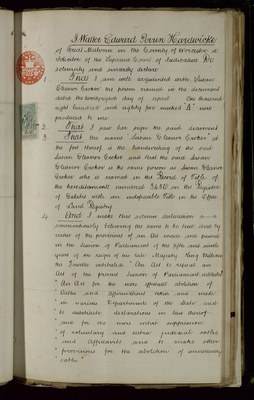 I Walter Edward Perrin Hardwicke
of Great Malvern in the County of Worcester a
Solicitor of the Supreme Court of Judicature Do
solemnly and sincerely declare
1. That I am well acquainted with Susan
Eleanor Croker the person named in the document
dated the day of april One thousand
eight hundred and eighty five marked "A" now
produced to me
2. That I saw her sign the said document
3. That the name "Susan Eleanor Croker" at
the foot thereof is the handwriting of the said
Susan Eleanor Croker and that the said Susan
Eleanor Croker is the same person as Susan Eleanor
Croker who is named in the Record of Title of
the hereditaments numbered in the Register
of Estates with an indefeasible Title in the Office
of Land Registry
4. And I make this solemn declaration
conscientiously believing the same to be true and by
virtue of the provisions of an Act made and passed
in the Session of Parliament of the fifth and sixth
years of the reign of his late Majesty King William
the Fourth intituled "An Act to repeal an
Act of the present Session of Parliament intituled
"An Act for the more effectual abolition of
Oaths and affirmations taken and made
"in various Departments of the State and
"to substitute declarations in lieu thereof
"and for the more entire suppression
"of voluntary and extra judicial oaths
"and Affidavits and to make other
"provisions for the abolition of unnecessary
oaths"